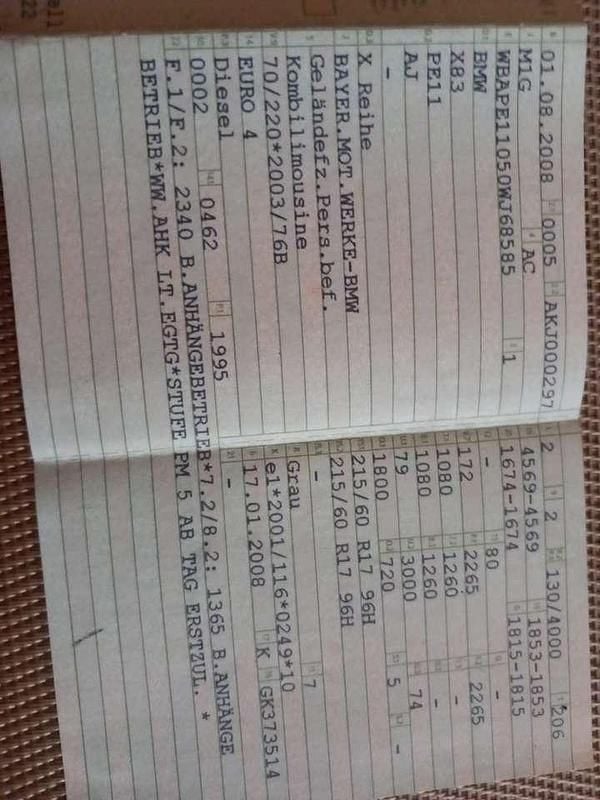 01.08.2008 0005 AKJ000297
M1G AC
WBAPE11050WJ68585 1
BMW
X83
PE11
AJ
-
X Reihe
BAYER.MOT.WERKE-BMW
Geländefz.Pers.bef.
Kombilimousine
70/220*2003/76B
EURO 4
Diesel
0002 0462 1995
F.1/F.2: 2340 B.ANHÄNGEBETRIEB*7.2/8.2: 1365 B.ANHÄNGE
BETRIEB*WW.AHK LT.EGTG*STUFE PM 5 AB TAG ERSTZUL. *
2 2 130/4000 206
4569-4569 1853-1853
1674-1674 1815-1815
- 80 -
172 2265 2265
1080 1260 -
1080 1260 -
79 3000 74
1800 720 5 -
215/60 R17 96H
215/60 R17 96H
-
Grau 7
e1*2001/116*0249*10
17.01.2008 K GK373514
-